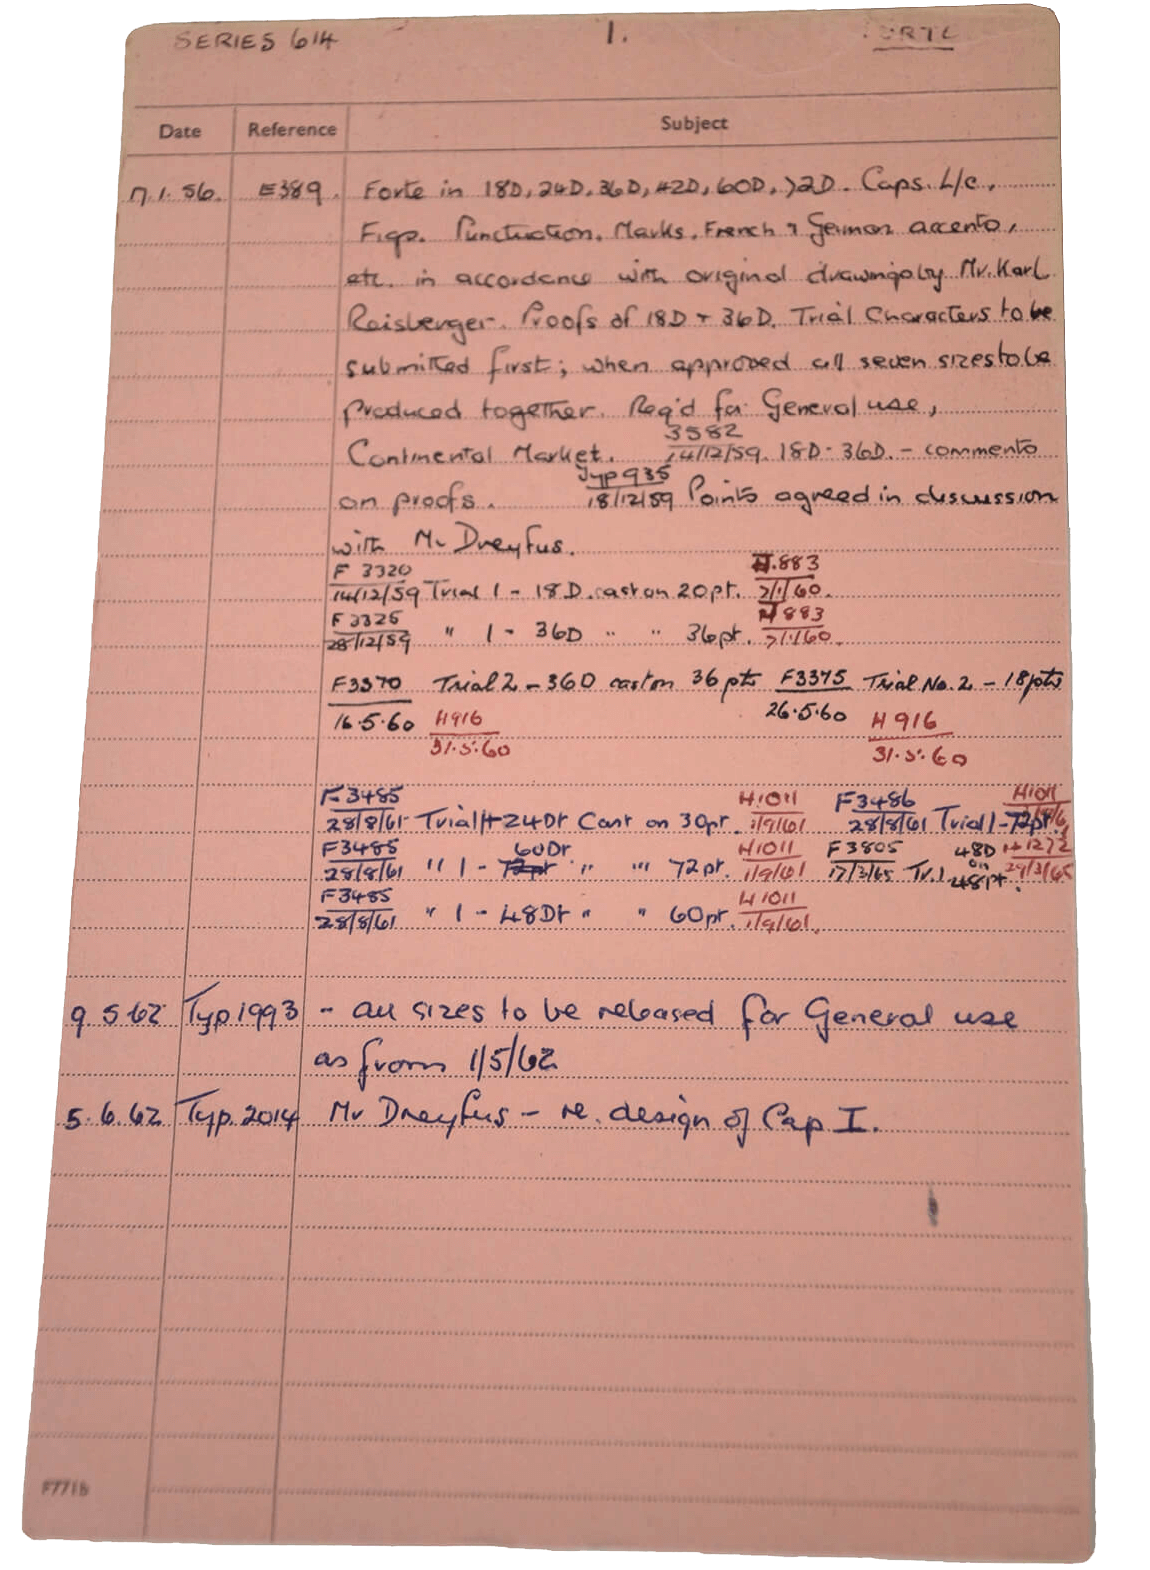 SERIES 614 1. FORTE
Date Reference Subject
17.1.56. E389. Forte in 18D, 24D, 36D, 42D, 60D, 72D. Caps. L/c,
Figs. Punctuation. Marks. French & German accents,
etc. in accordance with original drawings by Mr. Karl
Reisberger. Proofs of 18D + 36D. Trial Characters to be
submitted first; when approved all seven sizes to be
produced together. Req'd for General use,
3582
Continental Market. 14/12/59. 18D - 36D. - comments
Typ 935
on proofs. 18/12/59 Points agreed in discussion
with Mr Dreyfus.
F 3320 H.883
14/12/59 Trial 1 - 18D. cast on 20pt. 7/1/60.
F 3325 H 883
28/12/59 " 1 - 36D " " 36pt. 7/1/60.
F3370 Trial 2 - 36D cast on 36pts F3375 Trial No. 2 - 18pts
16.5.60 H916 26.5.60 H 916
31.5.60 31.5.60
F3485 H1011 F3486 H1011
28/8/61 Trial 1 24Dt Cast on 30pt. 1/9/61 28/8/61 Trial 1 - 72pt.
F3485 60Dt H1011 F3805 48D H1272
28/8/61 " 1 - 72pt " " 72pt. 1/9/61 17/3/65 Tr.1 on 48pt. 29/3/65
F3485 H1011
28/8/61 " 1 - 48Dt " " 60pt. 1/9/61.
9.5.62 Typ 1993 - all sizes to be released for General use
as from 1/5/62
5.6.62 Typ.2014 Mr Dreyfus - re. design of Cap I.
F771b